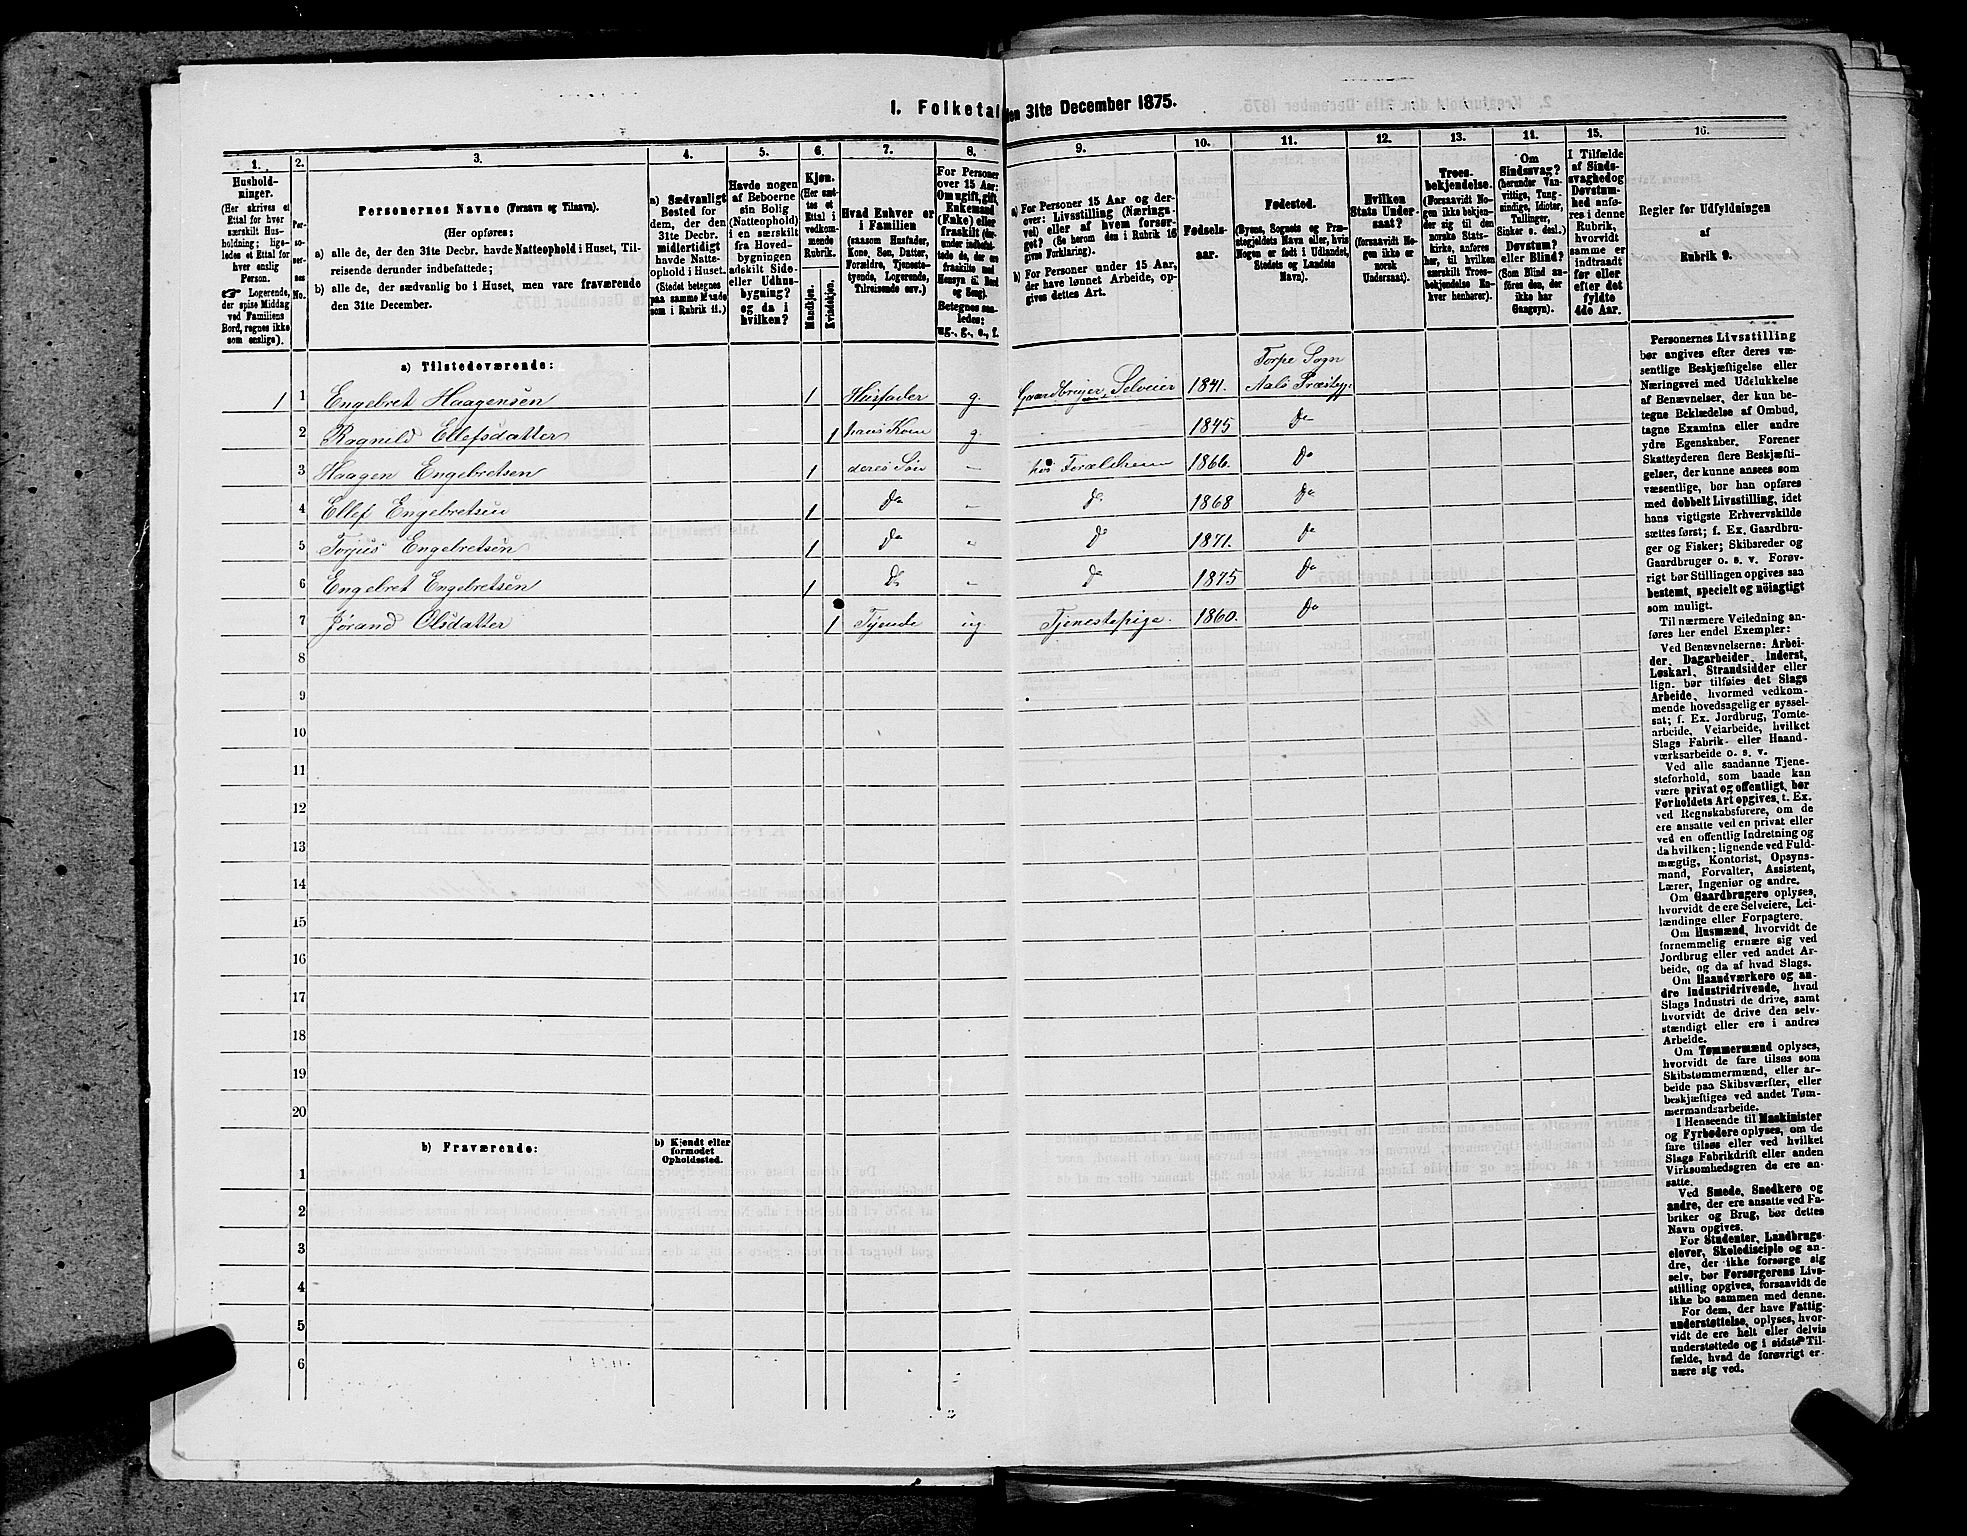 1. Folketal den 31te December 1875.
1. 2. 3. 4. 5. 6. 7. 8. 9. 10. 11. 12. 13. 14. 15. 16.
Hushold-
ninger.
(Her skrives et
Ettal for hver
særskilt Hus-
holdning; lige-
ledes et Ettal for
hver enslig
Person.
Logerende,
der spise Middag
ved Familiens
Bord, regnes ikke
som enslige).
Per-
so-
ner-
nes
No.
Personernes Navne (Fornavn og Tilnavn).
(Her opføres:
a) alle de, der den 31te Decbr. havde Natteophold i Huset, Til-
reisende derunder indbefattede;
b) alle de, der sædvanlig bo i Huset, men vare fraværende
den 31te December.
a) Sædvanligt
Bosted for
dem, der den
31te Decbr.
midlertidigt
havde Natte-
ophold i Huset.
(Stedet betegnes
paa samme Maade
som i Rubrik 11.)
Havde nogen
af Beboerne
sin Bolig
(Natteophold)
i en særskilt
fra Hoved-
bygningen
adskilt Side-
eller Udhus-
bygning?
og da i
hvilken?
Kjøn.
(Her sæt-
tes et
Ettal i
vedkom-
mende
Rubrik.
Mandkjøn.
Kvindekjøn.
Hvad Enhver er
i Familien
(saasom Husfader,
Kone, Søn, Datter,
Forældre, Tjeneste-
tyende, Logerende,
Tilreisende osv.)
For Personer
over 15 Aar:
Om ugift, gift,
Enkemand
(Enke) eller
fraskilt
Betegnes saa-
ledes:
ug., g., e., f.
a) For Personer 15 Aar og der-
over: Livsstilling (Nærings-
vei) eller af hvem forsør-
get? (Se herom den i Rubrik 16
givne Forklaring).
b) For Personer under 15 Aar,
der have lønnet Arbeide, op-
gives dettes Art.
Fødsels-
aar.
Fødested.
(Byens, Sognets og Præ-
stegjeldets Navn eller, hvis
Nogen er født i Udlandet,
Stedets og Landets
Navn).
Hvilken
Stats Under-
saat?
(forsaavidt No-
gen ikke er
norsk
Undersaat).
Troes-
bekjendelse.
(Forsaavidt No-
gen ikke bekjen-
der sig til den
norske Stats-
kirke, anføres
her, til hvilken
særskilt Troes-
bekjendelse En-
hver henhører).
Om
Sindssvag?
(herunder Van-
vittige, Tung-
sindige, Idioter,
Tullinger,
Sinker o. desl.)
Døvstum?
eller Blind?
(Som Blind an-
føres den, der
ikke har
Gangsyn).
I Tilfælde
af Sinds-
svaghed og
Døvstum-
hed anfø-
res i denne
Rubrik,
hvorvidt
samme er
indtraadt
før eller
efter det
fyldte
4de Aar.
Regler for Udfyldningen
af
Rubrik 9.
a) Tilstedeværende:
Torpe Sogn
1 1 Engebret Haagensen 1 Husfader g. Gaardbruger, Selveier 1841. Aals Præstgj:
2 Ragnild Ellefsdatter 1 hans Kone g 1845 Do
3 Haagen Engebretsen 1 deres Søn – hos Forældrene 1866. Do
4 Ellef Engebretsen 1 Do – Do 1868 Do
5 Torjus Engebretsen 1 Do – Do 1871. Do
6 Engebret Engebretsen 1 Do – Do 1875 Do
7 Jørand Olsdatter 1 Tyende ug. Tjenestepige. 1860. Do
8
9
10
11
12
13
14
15
16
17
18
19
20
b) Fraværende:
b) Kjendt eller
formodet
Opholdssted.
1
2
3
4
5
6
Personernes Livsstilling
bør angives efter deres væ-
sentlige Beskjæftigelse eller
Næringsvei med Udelukkelse
af Benævnelser, der kun be-
tegne Beklædelse af Ombud,
tagne Examina eller andre
ydre Egenskaber. Forener
Skatteyderen flere Beskjæfti-
gelser, der kunne ansees som
væsentlige, bør han opføres
med dobbelt Livsstilling, idet
hans vigtigste Erhvervskilde
sættes først; f. Ex. Gaardbru-
ger og Fisker; Skibsreder og
Gaardbruger o. s. v. Forøv-
rigt bør Stillingen opgives saa
bestemt, specielt og nöiagtigt
som muligt.
Til nærmere Veiledning an-
føres her endel Exempler:
Ved Benævnelserne: Arbei-
der, Dagarbeider, Inderst,
Løskarl, Strandsidder eller
lign. bør tilføies det Slags
Arbeide, hvormed vedkom-
mende hovedsagelig er syssel-
sat; f. Ex. Jordbrug, Tomte-
arbeide, Veiarbeide, hvilket
Slags Fabrik- eller Haand-
værksarbeide o. s. v.
Ved alle saadanne Tjene-
steforhold, som baade kan
være privat og offentligt, bør
Forholdets Art opgives, t. Ex.
ved Regnskabsførere, om de
ere ansatte ved en privat eller
ved en offentlig Indretning og
da hvilken; lignende ved Fuld-
mægtig, Kontorist, Opsyns-
mand, Forvalter, Assistent,
Lærer, Ingeniør og andre.
Om Gaardbrugere oplyses,
hvorvidt de ere Selveiere, Lei-
lændinge eller Forpagtere.
Om Husmænd, hvorvidt de
fornemmelig ernære sig ved
Jordbrug eller ved andet Ar-
beide, og da af hvad Slags.
Om Haandværkere og an-
dre Industridrivende, hvad
Slags Industri de drive, samt
hvorvidt de drive den selv-
stændigt eller ere i andres
Arbeide.
Om Tømmermænd oplyses,
hvorvidt de fare tilsøs som
Skibstømmermænd, eller ar-
beide paa Skibsværfter, eller
beskjæftiges ved andet Tøm-
mermandsarbeide.
I Henseende til Maskinister
og Fyrbødere oplyses, om de
fare tilsøs eller ved hvilket
Slags Fabrikdrift eller anden
Virksomhedsgren de ere an-
satte.
Ved Smede, Snedkere og
andre, der ere ansatte ved Fa-
briker og Brug, bør dettes
Navn opgives.
For Studenter, Landbrugs-
elever, Skoledisciple og an-
dre, der ikke forsørge sig
selv, bør Forsørgerens Livs-
stilling opgives, forsaavidt de
ikke bo sammen med denne.
For dem, der have Fattig-
understøttelse, oplyses, hvor-
vidt de ere helt eller delvis
understøttede og i sidste Til-
fælde, hvad de forøvrigt er-
nære sig ved.